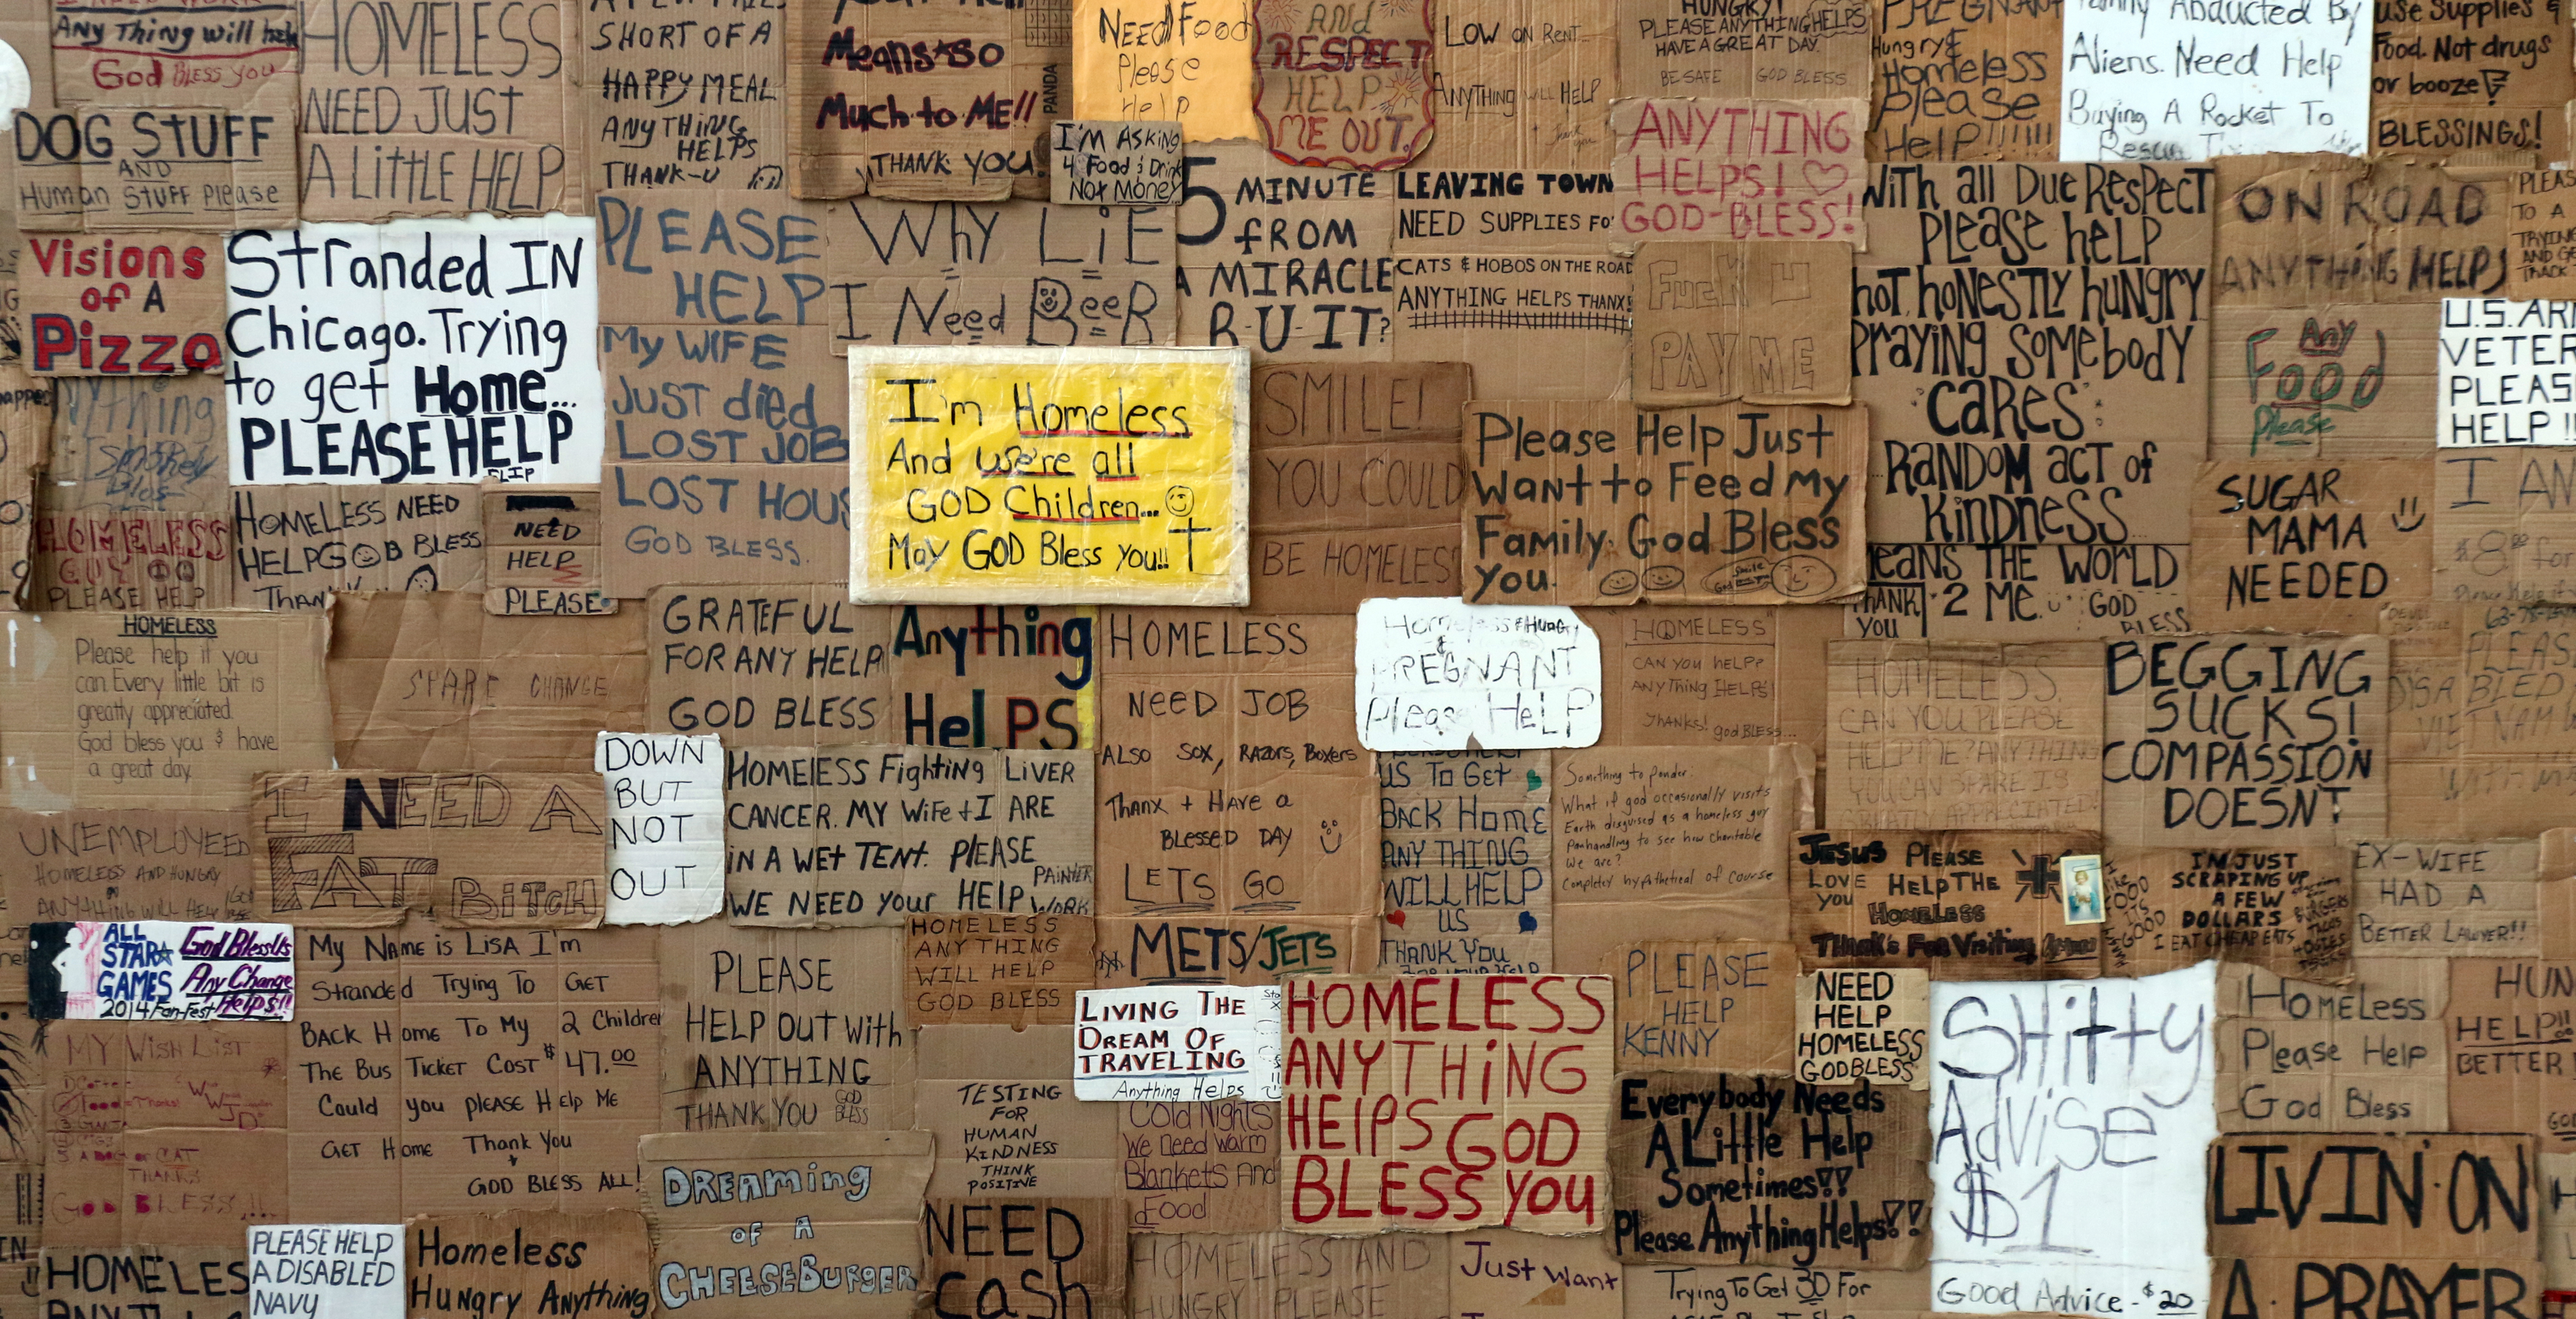 Any Thing will help
God BLESS YOU
HOMELESS
NEED JUST
A LITTLE HELP
SHORT OF A
HAPPY MEAL
ANYTHING
HELPS
THANK-U
Means so
Much to ME!!
THANK YOU
PANDA
NEED Food
Please
Help
I'M ASKING
4 Food & Drink
Not Money
AND
RESPECT
HELP
ME OUT.
LOW ON RENT
ANYTHING WILL HELP
Thank
you
HUNGRY!
PLEASE ANYTHING HELPS
HAVE A GREAT DAY.
BE SAFE GOD BLESS
ANYTHING
HELPS!
GOD-BLESS!
PREGNANT
Hungry &
Homeless
please
Help!!!!!!
Family Abducted By
Aliens. Need Help
Buying A Rocket To
use Supplies &
Food. Not drugs
or booze
BLESSINGS!
DOG STUFF
AND
Human STUFF Please
Visions
of A
Pizza
Stranded IN
Chicago. Trying
to get Home...
PLEASE HELP
PLEASE
HELP
My WIFE
JUST died
LOST JOB
LOST HOUS
GOD BLESS.
WHY LiE
I Need BeeR
5 MINUTE
fROM
A MIRACLE
R-U-IT?
LEAVING TOWN
NEED SUPPLIES FO
CATS & HOBOS ON THE ROAD
ANYTHING HELPS THANX!
FUCK U
PAY ME
WITH all Due RespecT
Please help
hot, honestly hungry
Praying Somebody
CaRes
RaNDOM acT of
KiNDNeSS
MEANS THE WORLD
2 ME.
THANK
YOU
GOD
BLESS
ON ROAD
ANYTHING HELPS
Any
Food
Please
U.S. ARM
VETER
PLEAS
HELP!!
I'm Homeless
And we're all
GOD Children...
May GOD Bless you!!
SMILE!
YOU COULD
BE HOMELESS
Please Help Just
Want to Feed My
Family. God Bless
you.
SUGAR
MAMA
NEEDED
HOMELESS
GUY
PLEASE HELP
HOMELESS NEED
HELP GOD BLESS
THAN
NEED
HELP
PLEASE
HOMELESS
Please help if you
can. Every little bit is
greatly appreciated.
God bless you & have
a great day.
SPARE CHANGE
GRATEFUL
FOR ANY HELP
GOD BLESS
Anything
HelPS
HOMELESS
NEED JOB
ALSO SOX, RAZORS, BOXERS
THANX + HAVE A
BLESSED DAY
LETS GO
METS/JETS
Homeless & Hungry
&
PREGNANT
Please HELP
HOMELESS
CAN YOU HELP?
ANYTHING HELPS
THANKS! god BLESS...
HOMELESS.
CAN YOU PLEASE
HELP ME? ANYTHING
YOU CAN SPARE IS
GREATLY APPRECIATED
BEGGING
SUCKS!
COMPASSION
DOESN'T
PLEAS
DISABLED
VIETNAM
UNEMPLOYEED
HOMELESS AND HUNGRY
ANYTHING WILL HELP
I NEED A
FAT BITCH
DOWN
BUT
NOT
OUT
HOMELESS Fighting LiVER
CANCER. MY Wife + I ARE
iN A WET TENT. PLEASE
WE NEED your HELP
PAINTER
WORK
US To GET
BACK HOME
ANY THING
WILL HELP
US
THANK YOU
Something to ponder:
What if god occasionally visits
Earth disguised as a homeless guy
Panhandling to see how charitable
We are?
Completely hypothetical of course
JESUS PLEASE
LOVE HELP THE
YOU HOMELESS
Thank's For Visiting
I'M JUST
SCRAPING UP
A FEW
DOLLARS
I EAT CHEAP EATS
EX-WIFE
HAD A
BETTER LAWYER!!
ALL
STAR
GAMES
2014 Fan-Fest
God Bless Us
Any Change
Helps!!
My Name is LISA I'm
Stranded Trying To GET
Back Home To My 2 Children
The Bus Ticket Cost $47.00
Could you please Help Me
GET Home Thank You
+
GOD BLESS ALL!
PLEASE
HELP OUT with
ANYTHING
THANK YOU
GOD
BLESS
HOMELESS
ANYTHING
WILL HELP
GOD BLESS
LIVING THE
DREAM OF
TRAVELING
Anything Helps
HOMELESS
ANYTHiNG
HElPS GOD
BLESS YOU
PLEASE
HELP
KENNY
NEED
HELP
HOMELESS
GOD BLESS
SHitty
AdViSe
$1
Good Advice - $20
HOMELESS
Please Help
God Bless
HUN
HELP!!
BETTER
MY WISH LIST
THANKS
GOD BLESS...
TESTING
FOR
HUMAN
KINDNESS
THINK
POSITIVE
Cold Nights
We need warm
Blankets And
Food
Everybody Needs
A Little Help
Sometimes!!
Please Anything Helps!!
LIVIN' ON
A PRAYER
HOMELES
PLEASE HELP
A DISABLED
NAVY
Homeless
Hungry Anything
DREAMING
OF A
CHEESEBURGER
NEED
Cash
HOMELESS AND
HUNGRY PLEASE
Just Want
Trying To Get 30 For